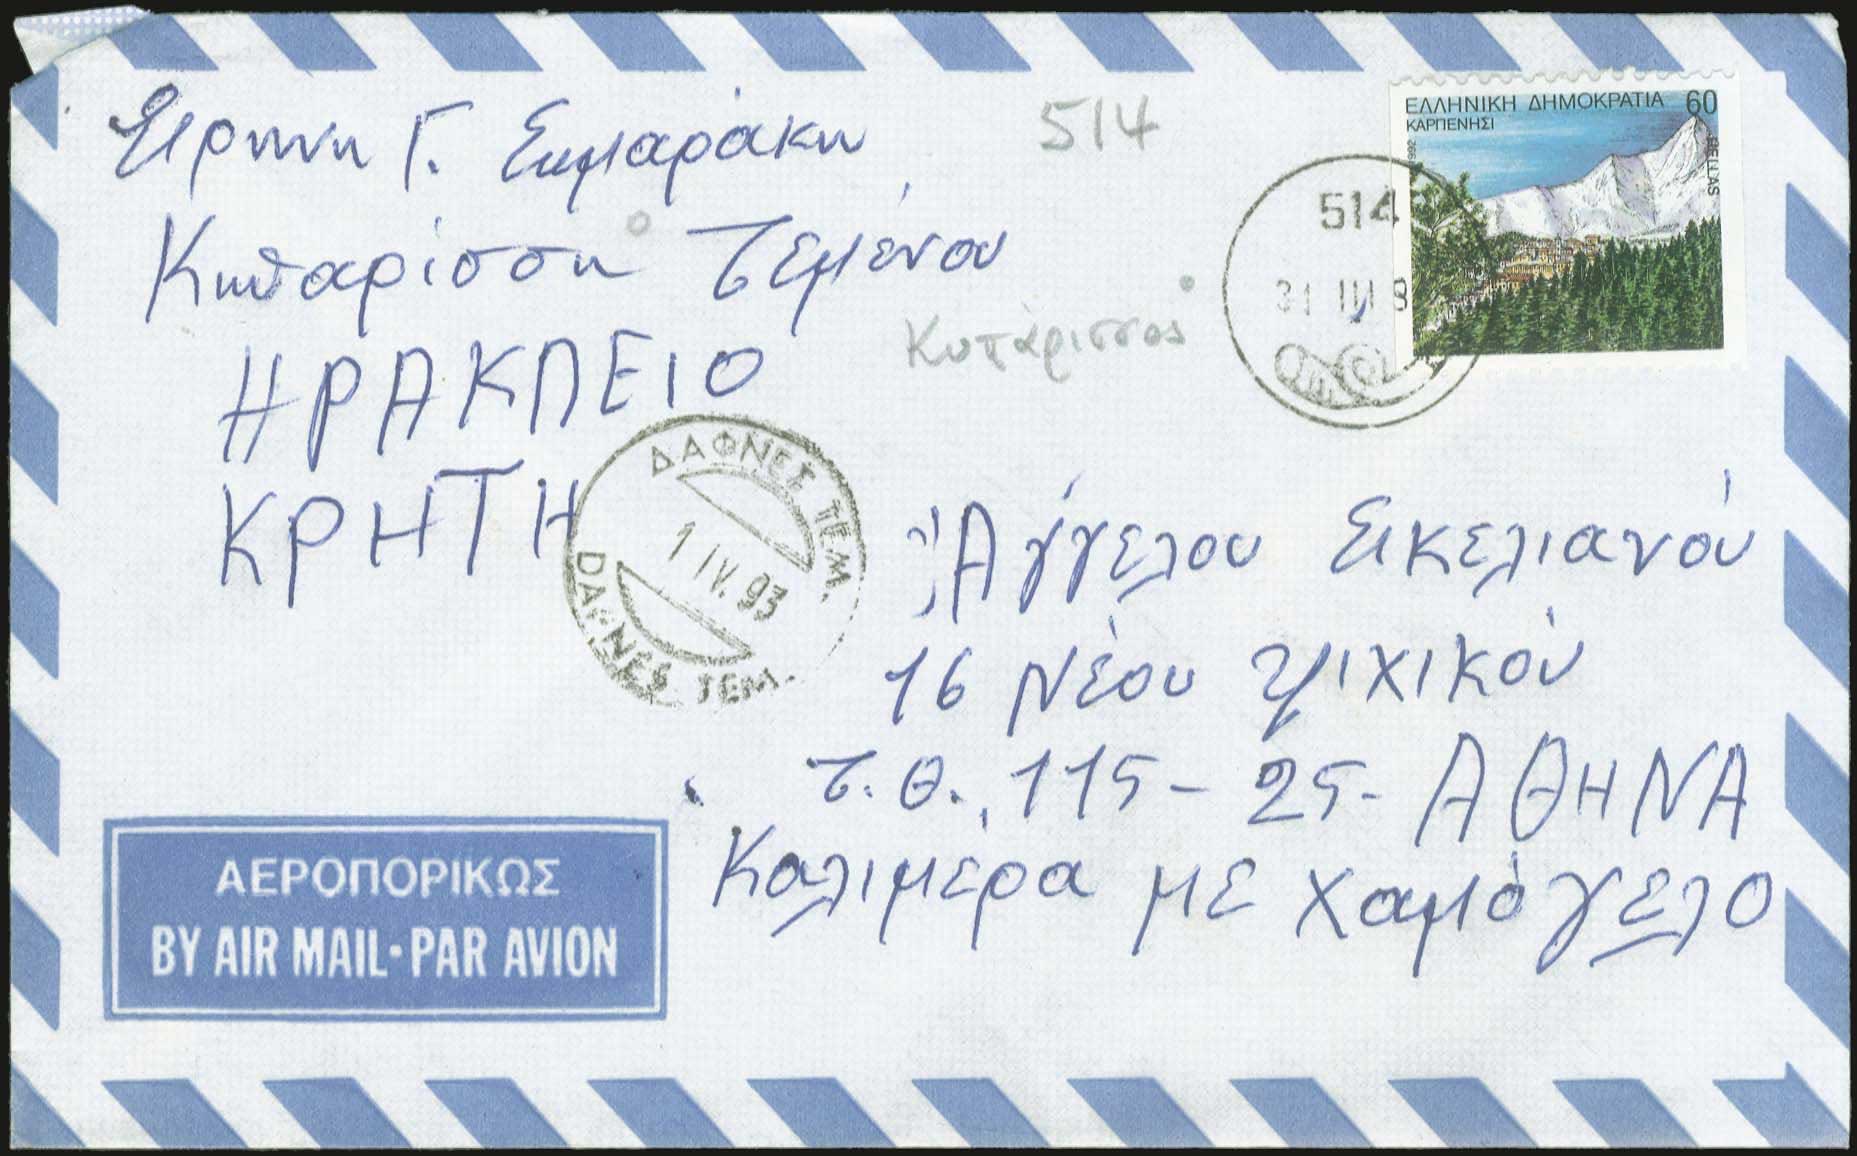 Ειρηνη Γ. Σημαράκη
Κηπαρίσση Τεμένου
ΗΡΑΚΛΕΙΟ
ΚΡΗΤΗ
514
Κυπάρισσος
ΕΛΛΗΝΙΚΗ ΔΗΜΟΚΡΑΤΙΑ 60
ΚΑΡΠΕΝΗΣΙ
1992
HELLAS
514
31 III 9
ΔΑΦΝΕΣ ΤΕΜ.
1 IV. 93
DAFNES TEM.
Αγγέλου Σικελιανού
16 Νέου Ψιχικού
Τ.Θ. 115-25- ΑΘΗΝΑ
Καλιμέρα με χαμόγελο
ΑΕΡΟΠΟΡΙΚΩΣ
BY AIR MAIL-PAR AVION